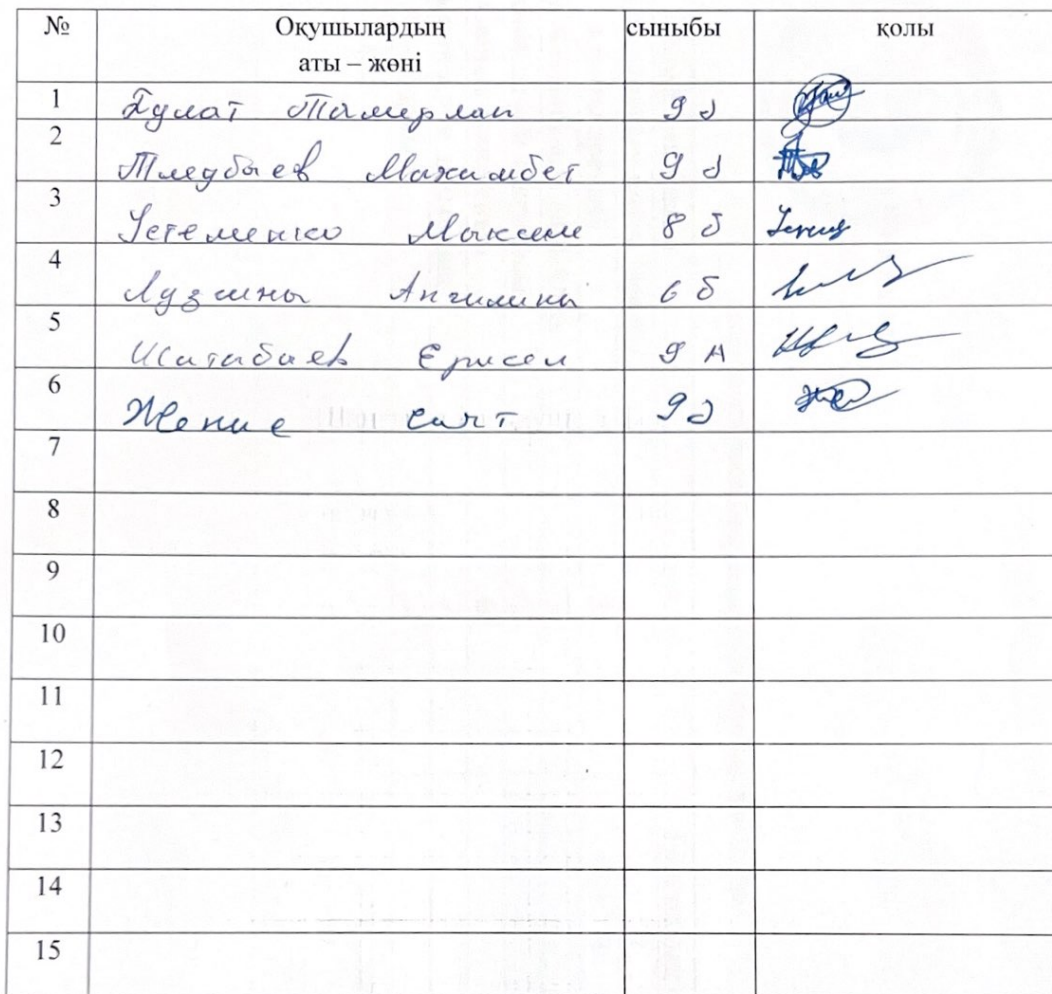 № Оқушылардың аты – жөні сыныбы қолы
1 Булат Тамерлан 9 д
2 Тлеубаев Махимбет 9 д
3 Устеменко Максим 8 б
4 Лузины Ангилины 6 б
5 Исатабаев Ерисел 9 А
6 Жение 9 д
7
8
9
10
11
12
13
14
15